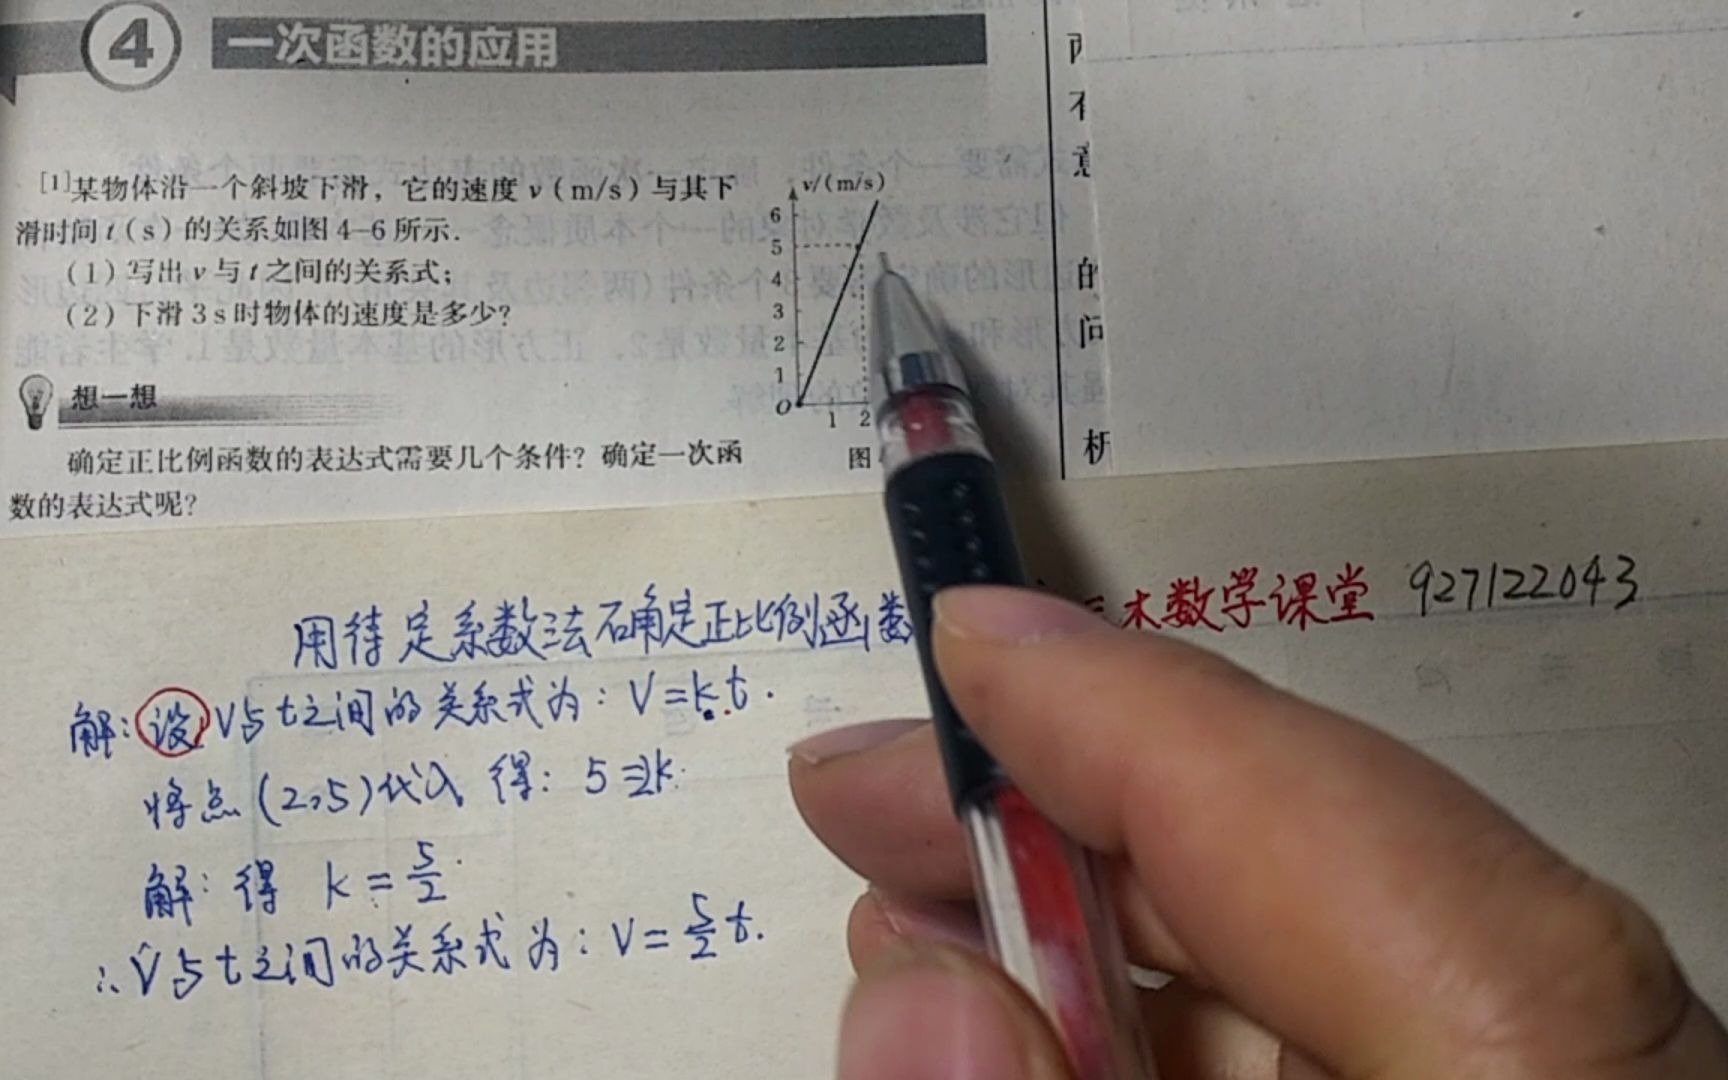 4 一次函数的应用
[1]某物体沿一个斜坡下滑，它的速度 v（m/s）与其下
滑时间 t（s）的关系如图 4-6 所示.
（1）写出 v 与 t 之间的关系式；
（2）下滑 3 s 时物体的速度是多少?
想一想
确定正比例函数的表达式需要几个条件？确定一次函
数的表达式呢?
v/(m/s)
6
5
4
3
2
1
O
1 2
图
有
意
的
问
析
用待定系数法确定正比例函数
木数学课堂 927122043
解: 设 V与t之间的关系式为: V=kt.
将点(2,5)代入 得: 5=2k.
解: 得 k=5/2.
∴V与t之间的关系式为: V=5/2t.